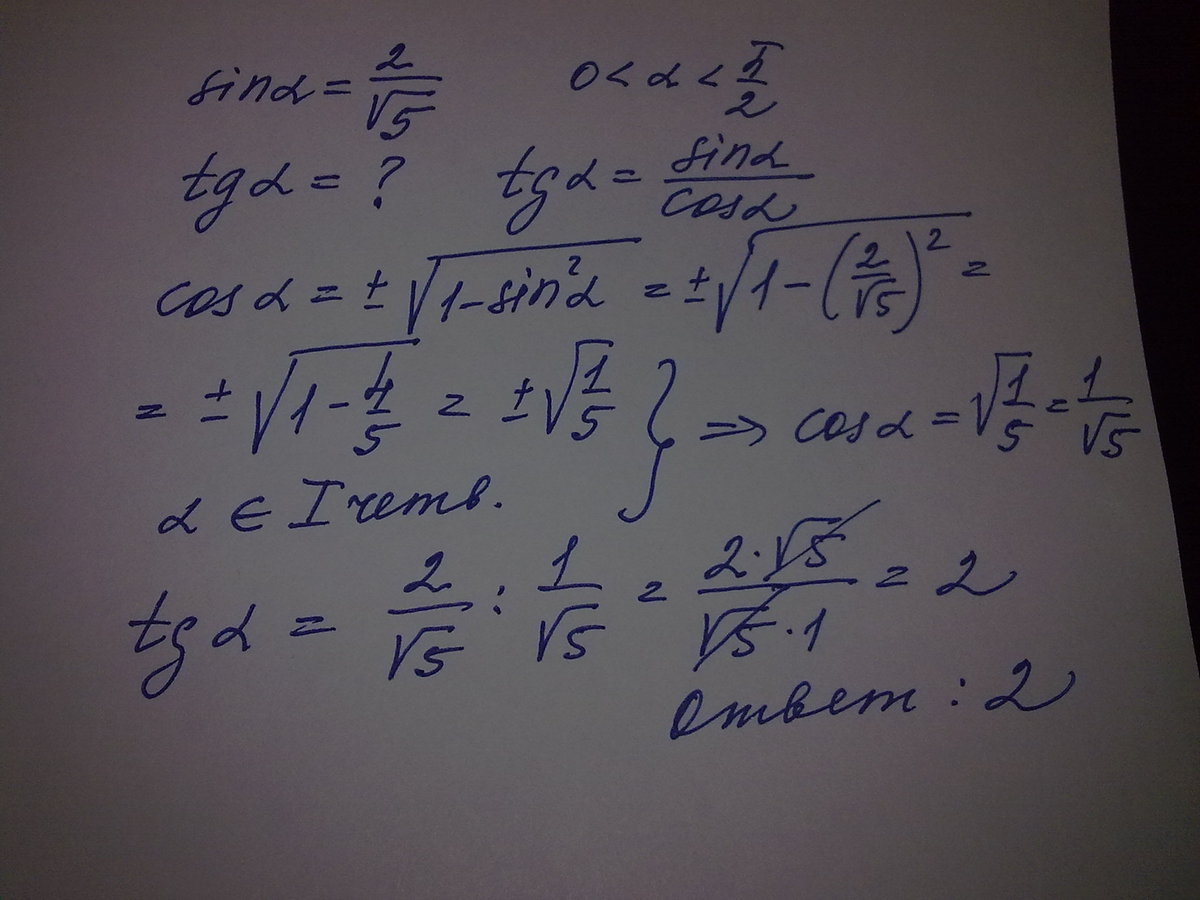 sinα = 2/√5 0 < α < π/2
tgα = ? tgα = sinα/cosα
cosα = ±√(1-sin²α) = ±√(1-(2/√5)²) =
= ±√(1-4/5) = ±√(1/5) } => cosα = √(1/5) = 1/√5
α ∈ I четв.
tgα = 2/√5 : 1/√5 = 2·√5/√5·1 = 2
Ответ : 2